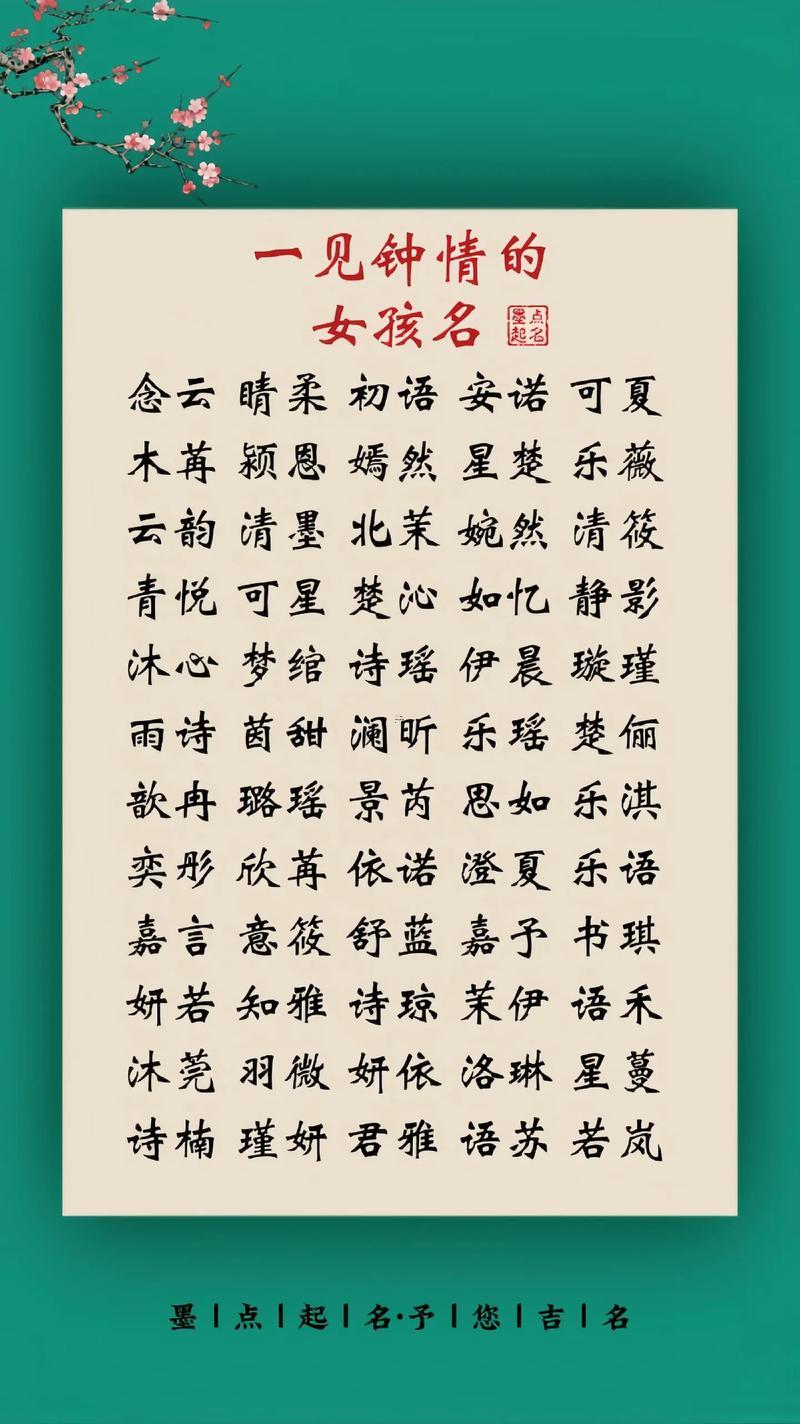 一见钟情的
女孩名
墨点
起名
念云 晴柔 初语 安诺 可夏
木苒 颍恩 嫣然 星楚 乐薇
云韵 清墨 北茉 婉然 清筱
青悦 可星 楚沁 如忆 静影
沐心 梦绾 诗瑶 伊晨 璇瑾
雨诗 茵甜 澜昕 乐瑶 楚俪
歆冉 璐瑶 景芮 思如 乐淇
奕彤 欣苒 依诺 澄夏 乐语
嘉言 意筱 舒蓝 嘉予 书琪
妍若 知雅 诗琼 茉伊 语禾
沐莞 羽微 妍依 洛琳 星蔓
诗楠 瑾妍 君雅 语苏 若岚
墨|点|起|名·予|您|吉|名